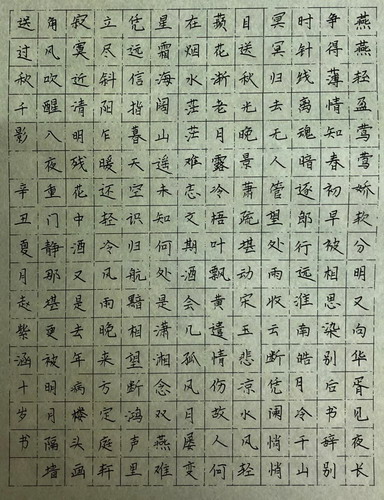 燕燕轻盈莺莺娇软分明又向华胥见夜长
争得薄情知春初早被相思染别后书辞别
时针线离魂暗逐郎行远淮南皓月冷千山
冥冥归去无人管望处雨收云断凭阑悄悄
目送秋光晚景萧疏堪动宋玉悲凉水风轻
蘋花渐老月露冷梧叶飘黄遣情伤故人何
在烟水茫茫难忘文期酒会几孤风月屡变
星霜海阔山遥未知何处是潇湘念双燕难
凭远信指暮天空识归航黯相望断鸿声里
立尽斜阳乍暖还轻冷风雨晚来方定庭轩
寂寞近清明残花中酒又是去年病楼头画
角风吹醒入夜重门静那堪更被明月隔墙
送过秋千影 辛丑夏月赵紫涵十岁书